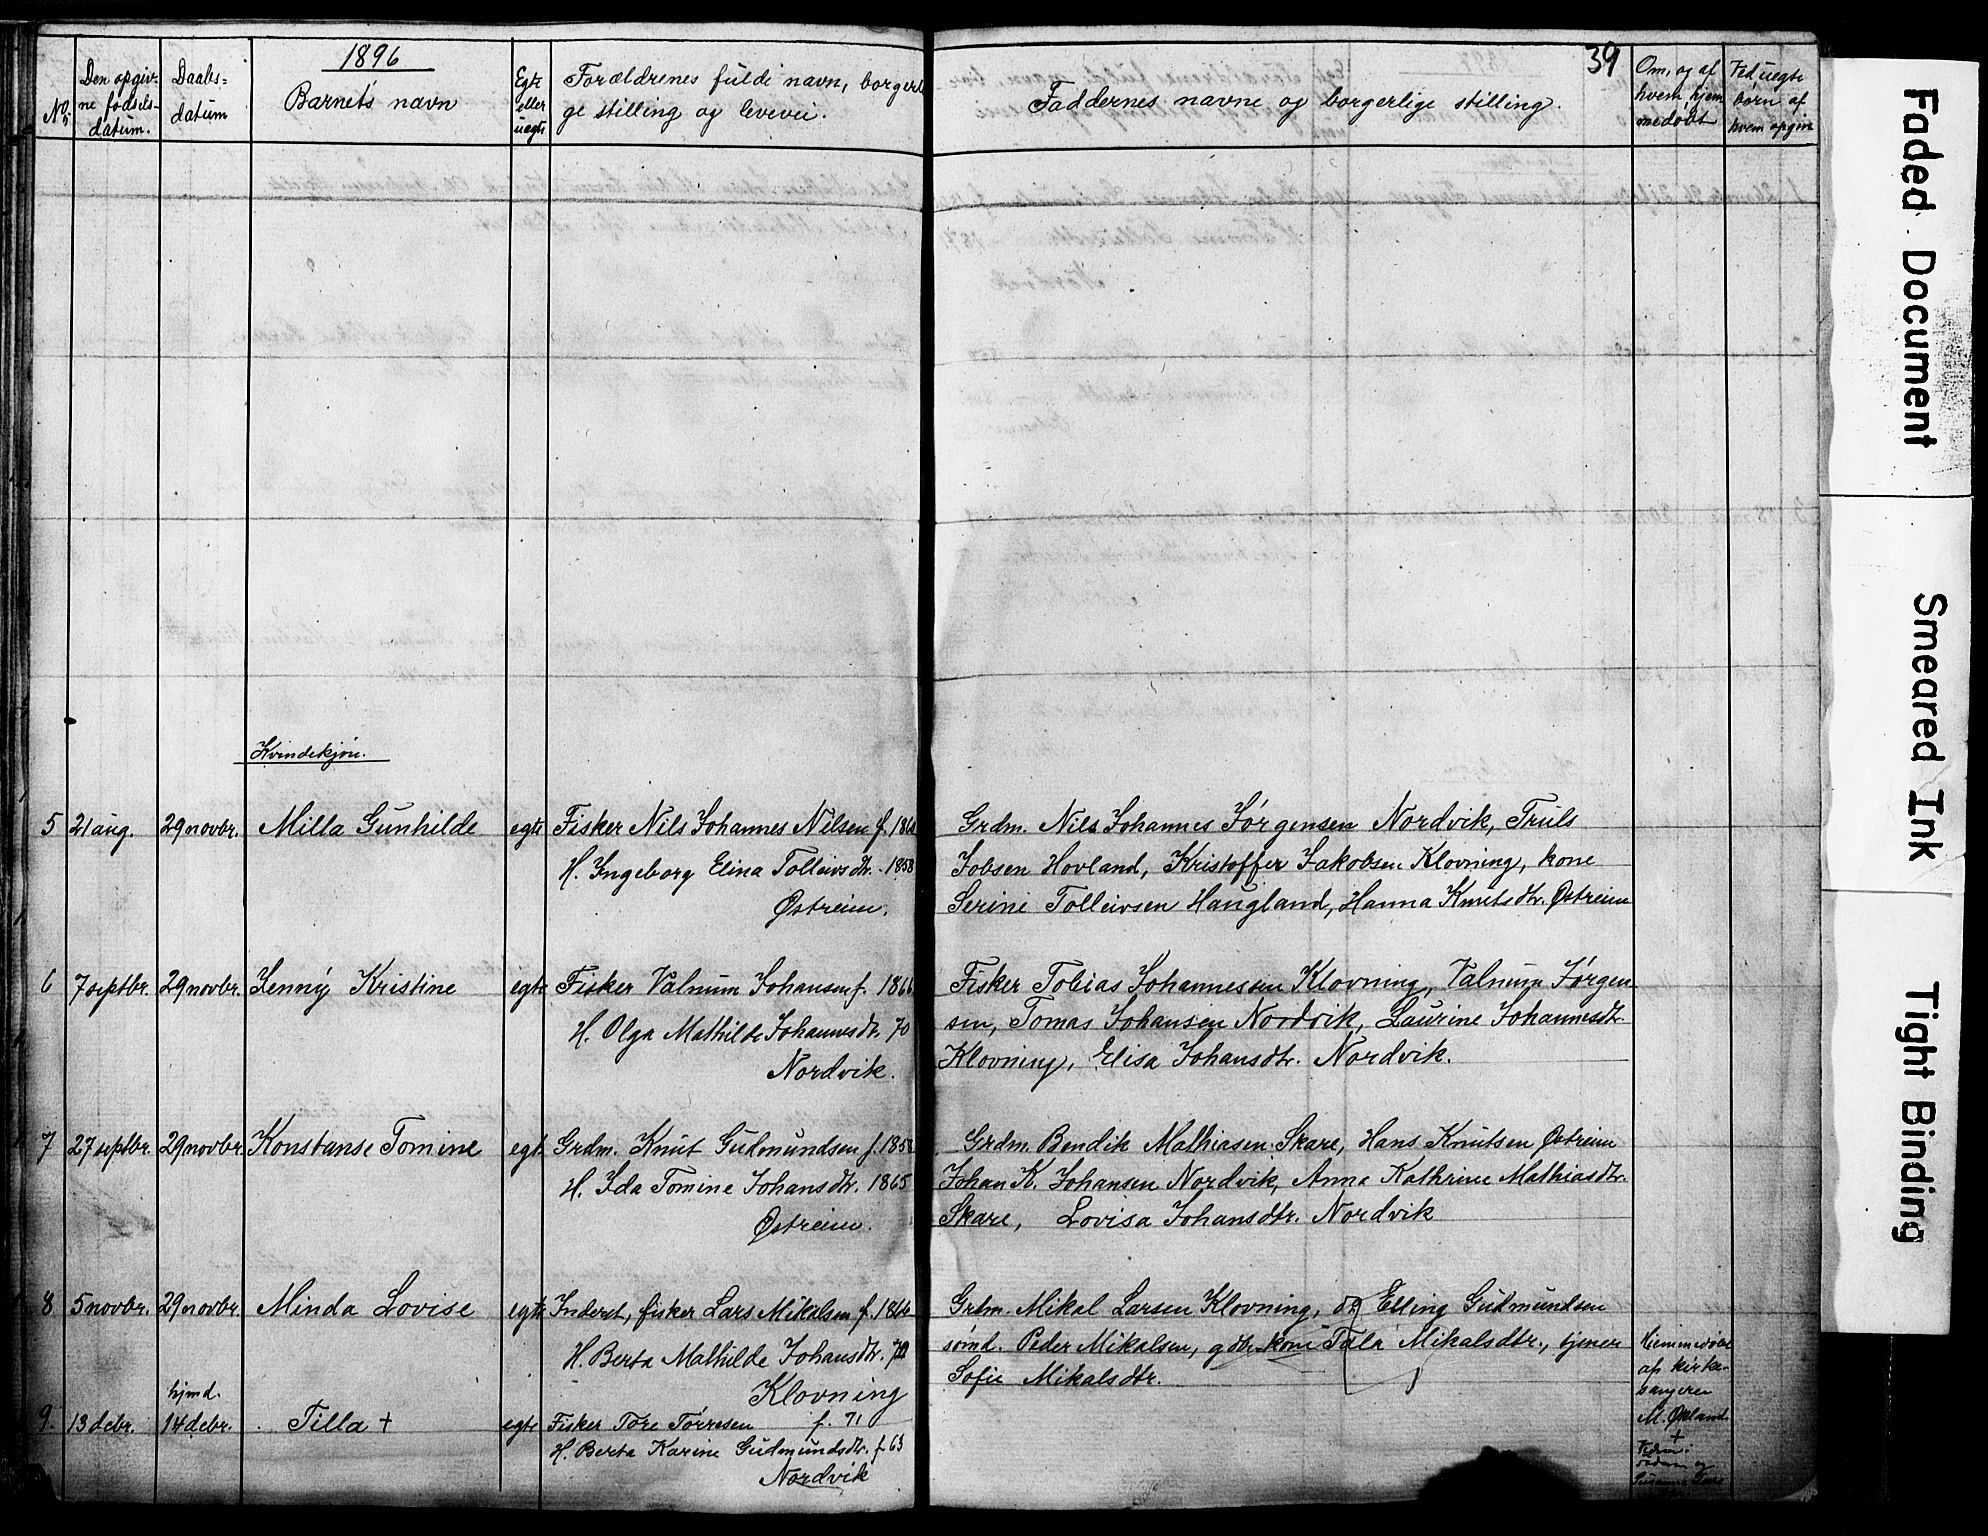 1896
39
No.
Den opgiv-
ne fødsels-
datum.
Daabs-
datum
Barnets navn
Egte
eller
uegte
Forældrenes fulde navn, borgerli
ge stilling og levevei.
Faddernes navne og borgerlige stilling.
Om, og af
hvem, hjem
medøbt
Ved uegte
børn af
hvem opgiv
Kvindekjøn.
5 21 aug. 29 novbr. Milla Gunhilde egte Fisker Nils Johannes Nilsen f. 186
H. Ingeborg Elina Tolleivsdtr. 1858
Østreim.
Grdm. Nils Johannes Jørgensen Nordvik, Truls
Jobsen Hovland, Kristoffer Jakobsen Klovning, kone
Serine Tolleivsen Haugland, Hanna Knutsdtr. Østreim
6 7 septbr. 29 novbr. Jenny Kristine egte Fisker Valnum Johansen f. 1866
H. Olga Mathilde Johannesdtr. 70
Nordvik.
Fisker Tobias Johannessen Klovning, Valnum Jørgen
sen, Tomas Johansen Nordvik, Laurine Johannesdtr.
Klovning, Elisa Johansdtr. Nordvik.
7 27 septbr. 29 novbr. Konstanse Tomine egte Grdm. Knut Gudmundsen f. 1858
H. Ida Tomine Johansdtr. 1865
Østreim.
Grdm. Bendik Mathiasen Skare, Hans Knutsen Østreim
Johan K. Johansen Nordvik, Anna Kathrine Mathiasdtr.
Skare, Lovisa Johansdtr. Nordvik
8 5 novbr. 29 novbr. Minda Lovise egte Inderst, fisker Lars Mikalsen f. 1864
H. Berta Mathilde Johansdtr. 72
Klovning
Grdm. Mikal Larsen Klovning, og Elling Gudmundsen
sømd. Peder Mikalsen, gdbr. kone Tala Mikalsdtr., tjener
Sofie Mikalsdtr.
9. 13 debr. hjmd. 14 debr. Tilla + egte Fisker Tore Tørresen f. 71
H. Berta Karine Gudmundsdtr. f. 63
Nordvik
Hjemmedøbt
af kirke-
sanger
M. Økland
+
Faded Document
Smeared Ink
Tight Binding